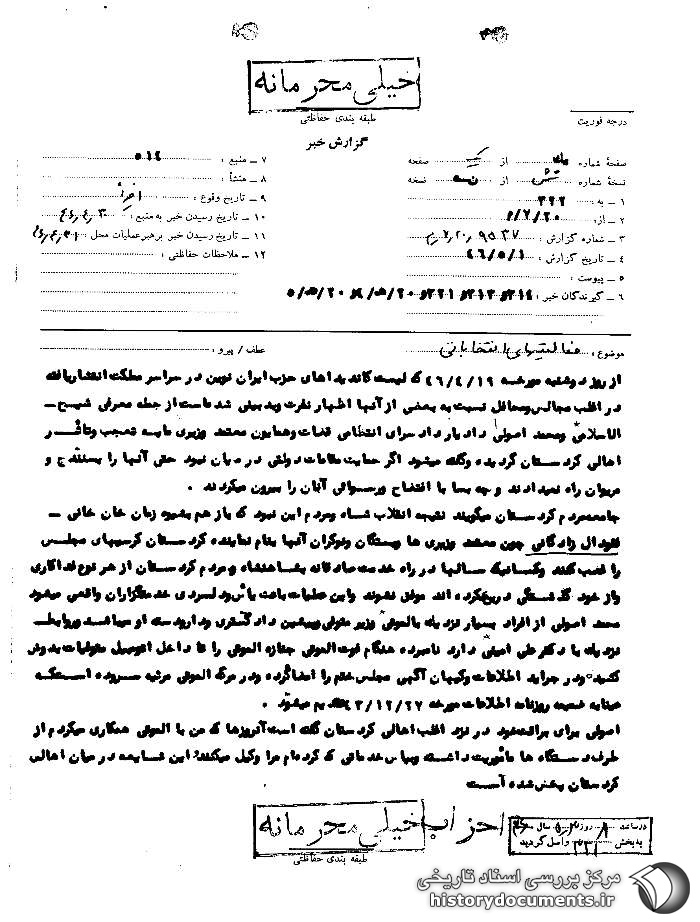 خیلی محرمانه
طبقه بندی حفاظتی
درجه فوریت
گزارش خبر
صفحهٔ شماره یک از یک صفحه
نسخهٔ شماره شش از نسخه
۱ ــ به : ۳۲۲
۲ ــ از :
۳ ــ شماره گزارش :
۴ ــ تاریخ گزارش : ۴۶/۵/۱
۵ ــ پیوست :
۶ ــ گیرندگان خبر :
۷ ــ منبع :
۸ ــ منشأ :
۹ ــ تاریخ وقوع : اخیراً
۱۰ ــ تاریخ رسیدن خبر به منبع : ۴۶/۴/۳۰
۱۱ ــ تاریخ رسیدن خبر برهبر عملیات محل : ۴۶/۴/۳۱
۱۲ ــ ملاحظات حفاظتی :
موضوع : فعالیتهای انتخاباتی
عطف / پیرو :
از روز دوشنبه مورخه ۴۶/۴/۱۹ که لیست کاندیداهای حزب ایران نوین در سراسر مملکت انتشار یافته
در اغلب مجالس ومحافل نسبت به بعضی از آنها اظهار نفرت وبدبینی شده است از جمله معرفی شیخ ــ
الاسلامی ومحمد اصولی دادیار دادسرای انتظامی قضات وهمایون معتمد وزیری مایه تعجب وتاثر
اهالی کردستان گردیده وگفته میشود اگر حمایت مقامات دولتی در میان نبود حتی آنها را بسنندج و
مریوان راه نمیدادند و چه بسا با افتضاح ورسوائی آنان را بیرون میکردند .
جامعه مردم کردستان میگویند نتیجه انقلاب شاه ومردم این نبود که باز هم بشیوه زمان خان خانی ــ
فئودال زادگانی چون معتمد وزیری ها وبستگان ونوکران آنها بنام نماینده کردستان کرسیهای مجلس
را غصب کنند وکسانیکه سالها در راه خدمت صادقانه بشاهنشاه ومردم کردستان از هر نوع فداکاری
واز خود گذشتگی دریغ نکرده اند موفق نشوند واین عملیات باعث یأس ودلسردی خدمتگزاران واقعی میشود
محمد اصولی از افراد بسیار نزدیک بالموتی وزیر متوفی وپیشین دادگستری ودارودسته او میباشد وروابط
نزدیک با دکتر علی امینی دارد نامبرده هنگام فوت الموتی جنازه الموتی را تا داخل اتومبیل متوفیات بدوش
کشید ودر جراید اطلاعات وکیهان آگهی مجلس ختم را امضا کرده ودر مرگ الموتی مرثیه سروده است که
عینا به ضمیمه روزنامه اطلاعات مورخه ۴۳/۱۲/۲۷ تقدیم میشود .
اصولی برای برائت خود در نزد اغلب اهالی کردستان گفته است آنروزها که من با الموتی همکاری میکردم از
طرف دستگاه ها ماموریت داشته وبپاس خدماتی که کرده ام مرا وکیل میکنند این شایعه در میان اهالی
کردستان پخش شده است
احزاب
خیلی محرمانه
طبقه بندی حفاظتی
در ساعت ۸ روز سال
به بخش ۳۲۲ واصل گردید
مرکز بررسی اسناد تاریخی
historydocuments.ir